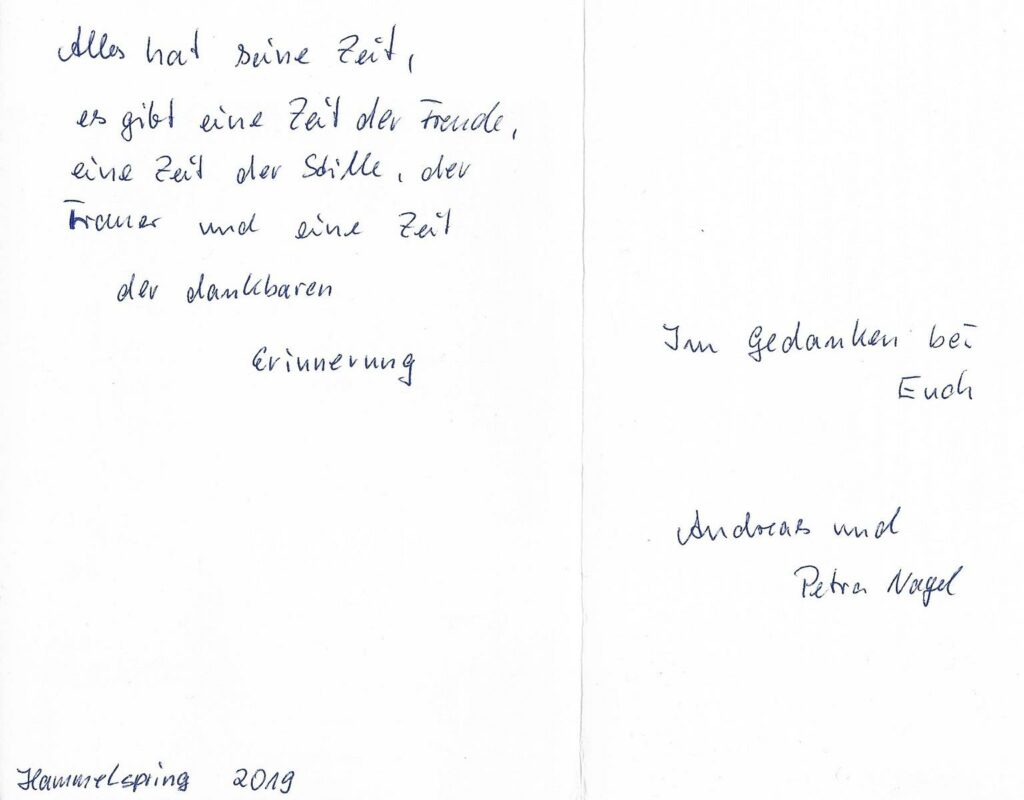 Alles hat seine Zeit,
es gibt eine Zeit der Freude,
eine Zeit der Stille, der
Trauer und eine Zeit
der dankbaren
Erinnerung
Im Gedanken bei
Euch
Andreas und
Petra Nagel
Hammelspring 2019